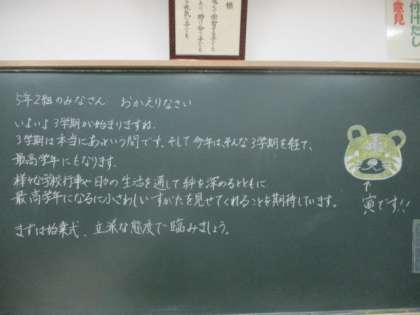 様
付けたし
意見
5年2組のみなさん おかえりなさい
いよいよ3学期が始まりますね。
3学期は本当にあっという間です。そして今年は、そんな3学期を経て、
最高学年にもなります。
様々な学校行事や日々の生活を通して絆を深めるとともに
最高学年になるに小さわしいすがたを見せてくれることを期待しています。
まずは始業式、立派な態度で臨みましょう。
↑
寅です!!